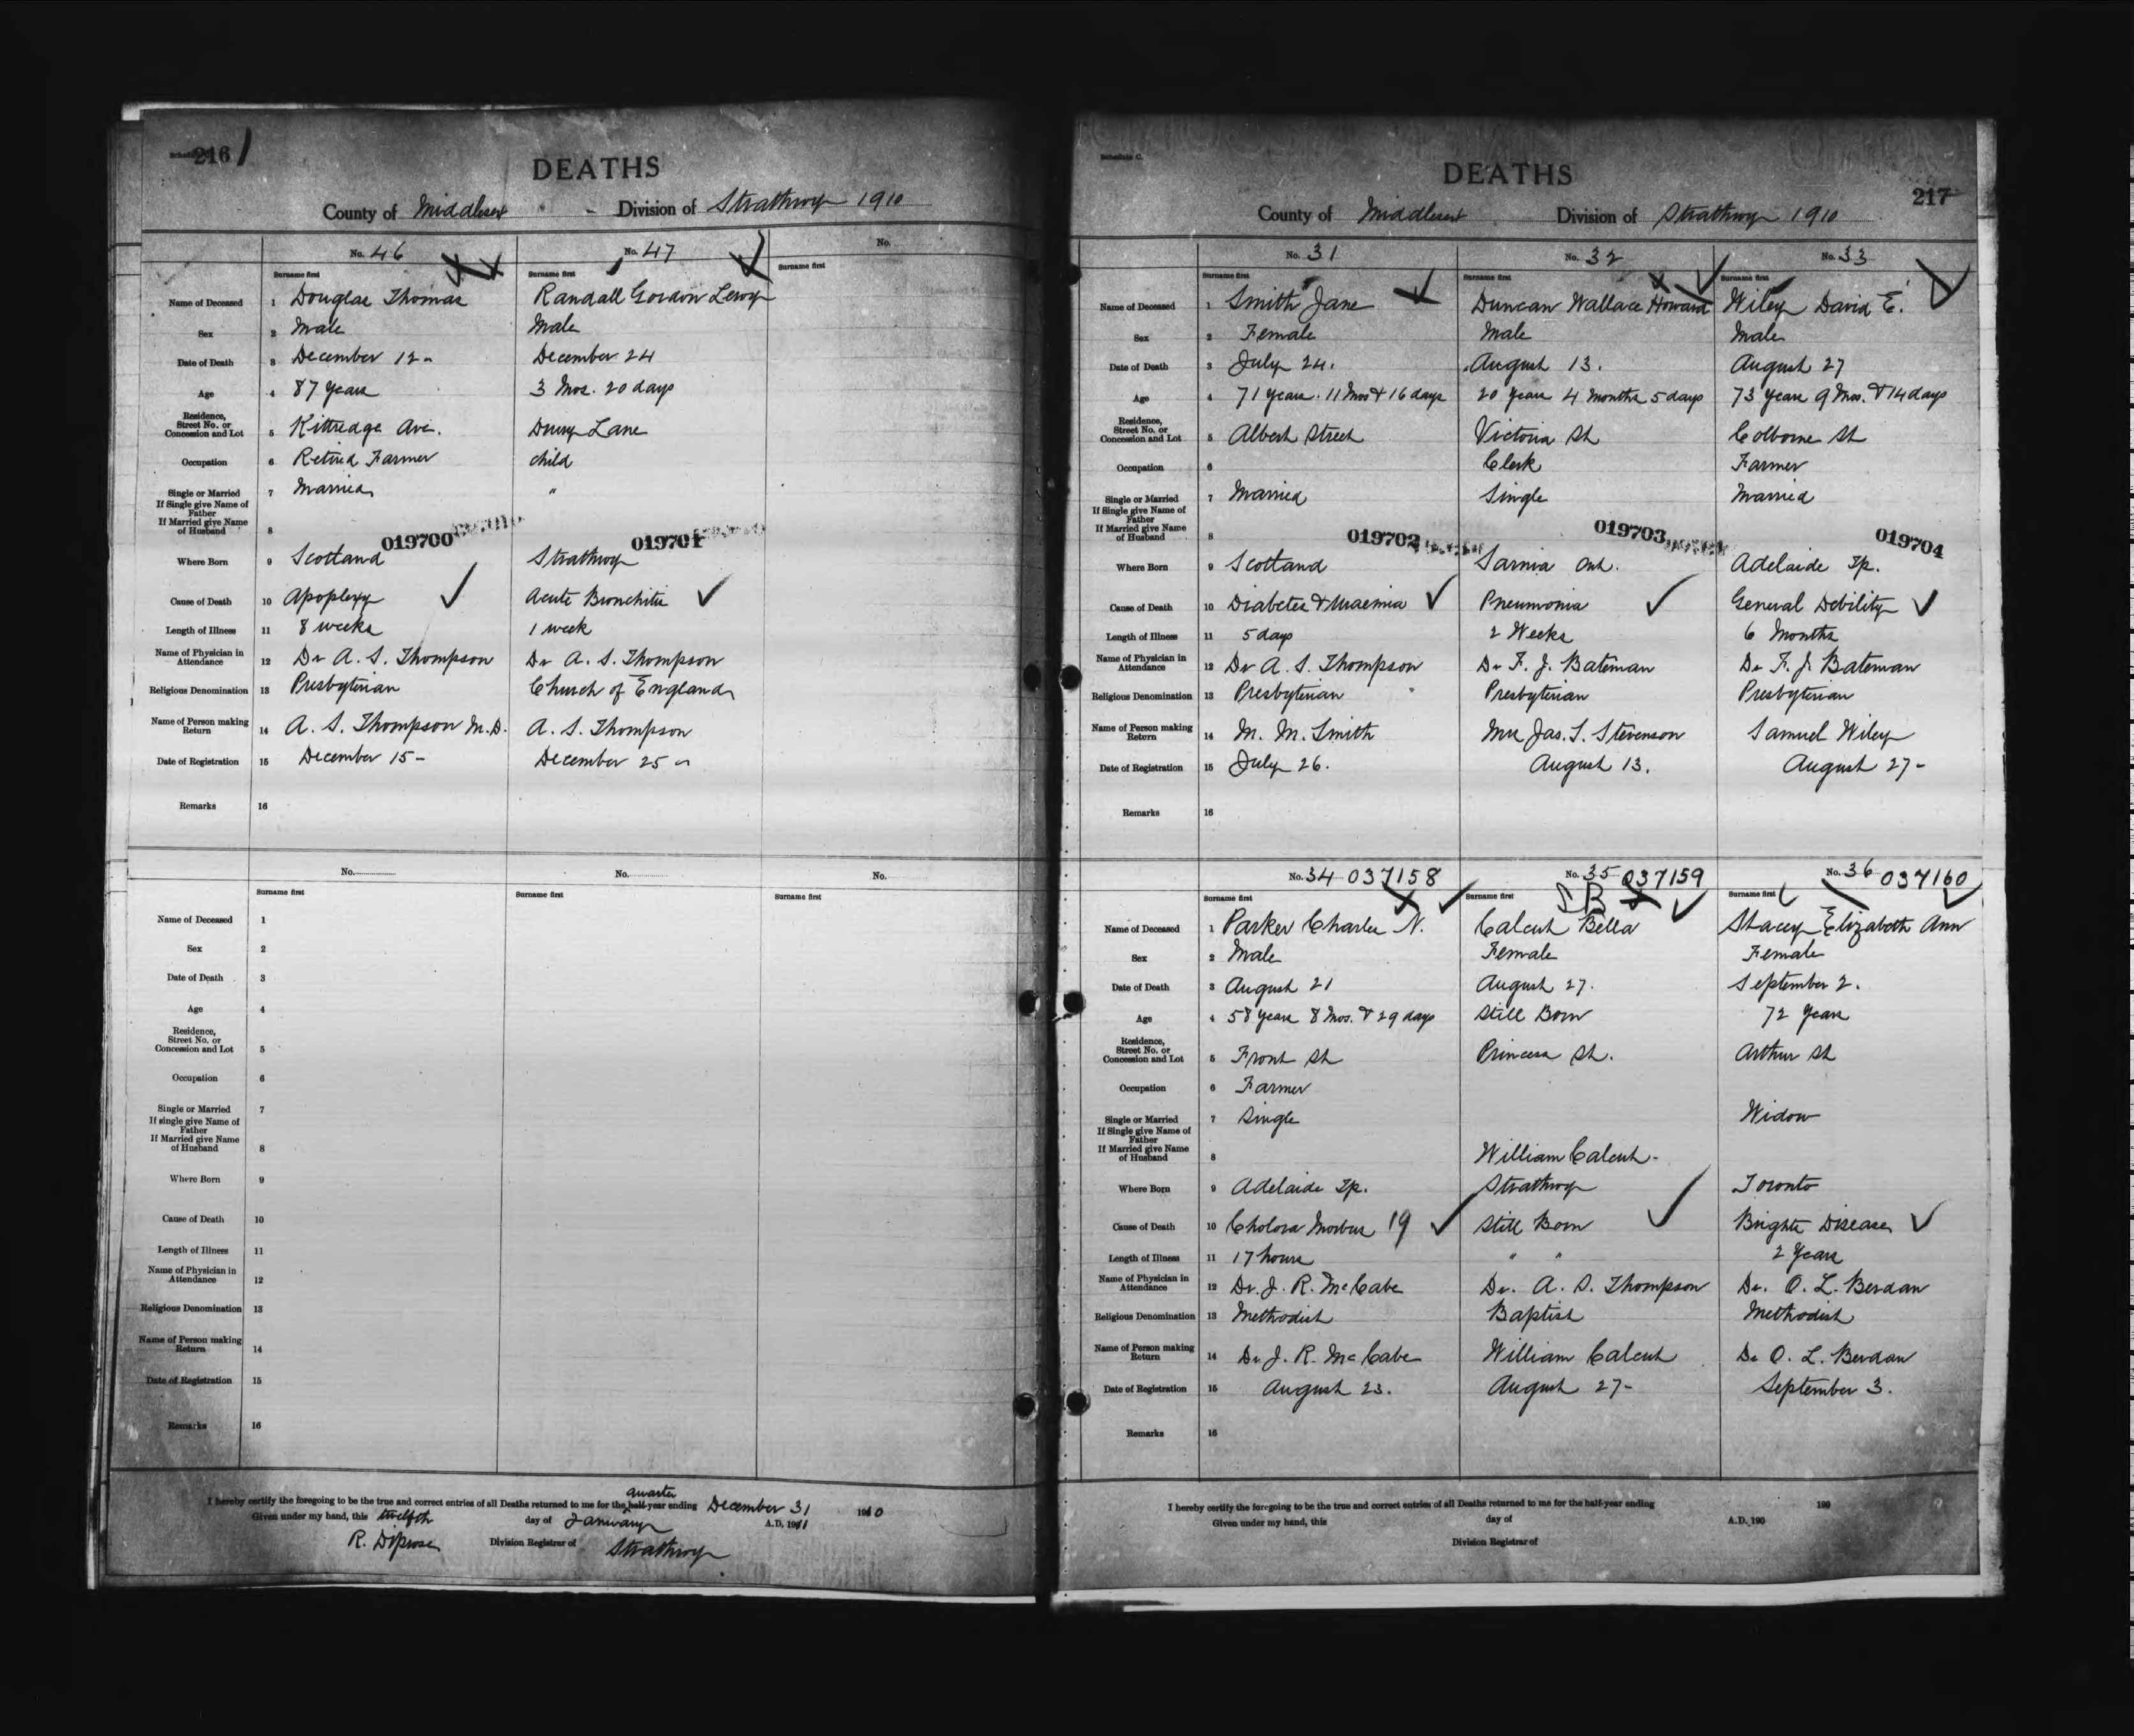 Schedule C.
216
DEATHS
County of Middlesex Division of Strathroy 1910
No. 46 No. 47 No.
Surname first Surname first Surname first
Name of Deceased 1 Douglas Thomas Randall Gordon Leroy
Sex 2 Male Male
Date of Death 3 December 12 December 24
Age 4 87 years 3 Mos. 20 days
Residence, Street No. or Concession and Lot 5 Kittredge Ave. Drury Lane
Occupation 6 Retired Farmer child
Single or Married 7 Married "
If Single give Name of Father
If Married give Name of Husband 8
019700 019701
Where Born 9 Scotland Strathroy
Cause of Death 10 Apoplexy Acute Bronchitis
Length of Illness 11 8 weeks 1 week
Name of Physician in Attendance 12 Dr A. S. Thompson Dr A. S. Thompson
Religious Denomination 13 Presbyterian Church of England
Name of Person making Return 14 A. S. Thompson M.D. A. S. Thompson
Date of Registration 15 December 15 - December 25 -
Remarks 16
No. No. No.
Surname first Surname first Surname first
Name of Deceased 1
Sex 2
Date of Death 3
Age 4
Residence, Street No. or Concession and Lot 5
Occupation 6
Single or Married 7
If single give Name of Father
If Married give Name of Husband 8
Where Born 9
Cause of Death 10
Length of Illness 11
Name of Physician in Attendance 12
Religious Denomination 13
Name of Person making Return 14
Date of Registration 15
Remarks 16
quarter
I hereby certify the foregoing to be the true and correct entries of all Deaths returned to me for the half-year ending December 31 1910
Given under my hand, this twelfth day of January A.D. 1911
R. Diprose Division Registrar of Strathroy
Schedule C.
DEATHS
217
County of Middlesex Division of Strathroy 1910
No. 31 No. 32 No. 33
Surname first Surname first Surname first
Name of Deceased 1 Smith Jane Duncan Wallace Howard Wiley David E.
Sex 2 Female Male Male
Date of Death 3 July 24. August 13. August 27
Age 4 71 years 11 Mos & 16 days 20 years 4 months 5 days 73 years 9 Mos. & 14 days
Residence, Street No. or Concession and Lot 5 Albert Street Victoria St Colborne St
Occupation 6 Clerk Farmer
Single or Married 7 Married Single Married
If Single give Name of Father
If Married give Name of Husband 8
019702 019703 019704
Where Born 9 Scotland Sarnia Ont. Adelaide Tp.
Cause of Death 10 Diabetes & Uraemia Pneumonia General Debility
Length of Illness 11 5 days 2 Weeks 6 Months
Name of Physician in Attendance 12 Dr A. S. Thompson Dr F. J. Bateman Dr F. J. Bateman
Religious Denomination 13 Presbyterian Presbyterian Presbyterian
Name of Person making Return 14 M. M. Smith Mrs Jas. S. Stevenson Samuel Wiley
Date of Registration 15 July 26. August 13. August 27-
Remarks 16
No. 34 037158 No. 35 037159 No. 36 037160
Surname first Surname first Surname first
SB
Name of Deceased 1 Parker Charles N. Calcut Bella Stacey Elizabeth Ann
Sex 2 Male Female Female
Date of Death 3 August 21 August 27. September 2.
Age 4 58 years 8 Mos. & 29 days Still Born 72 Years
Residence, Street No. or Concession and Lot 5 Front St Princess St. Arthur St
Occupation 6 Farmer
Single or Married 7 Single Widow
If Single give Name of Father
If Married give Name of Husband 8 William Calcut -
Where Born 9 Adelaide Tp. Strathroy Toronto
Cause of Death 10 Cholera Morbus 19 Still Born Brights Disease
Length of Illness 11 17 hours " " 2 Years
Name of Physician in Attendance 12 Dr. J. R. McCabe Dr. A. S. Thompson Dr. O. L. Berdan
Religious Denomination 13 Methodist Baptist Methodist
Name of Person making Return 14 Dr J. R. McCabe William Calcut Dr O. L. Berdan
Date of Registration 15 August 23. August 27- September 3.
Remarks 16
I hereby certify the foregoing to be the true and correct entries of all Deaths returned to me for the half-year ending 190
Given under my hand, this day of A.D. 190
Division Registrar of